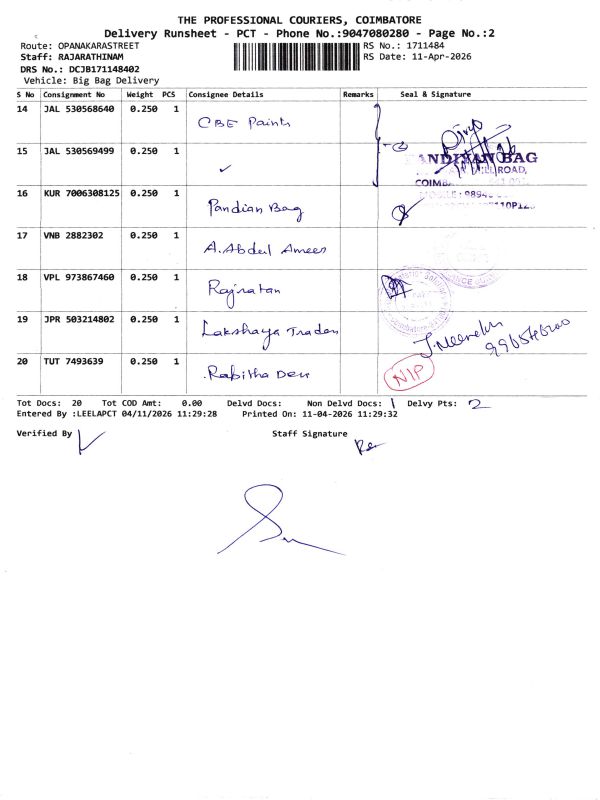 THE PROFESSIONAL COURIERS, COIMBATORE
Delivery Runsheet - PCT - Phone No.:9047080280 - Page No.:2
Route: OPANAKARASTREET
RS No.: 1711484
Staff: RAJARATHINAM
RS Date: 11-Apr-2026
DRS No.: DCJB171148402
Vehicle: Big Bag Delivery
S No Consignment No Weight PCS Consignee Details Remarks Seal & Signature
14 JAL 530568640 0.250 1 CBE Paints
15 JAL 530569499 0.250 1 ✓
ANDIYAN BAG
MILL ROAD,
COIMB
16 KUR 7006308125 0.250 1 Pandian Bag
17 VNB 2882302 0.250 1 A. Abdul Ameer
18 VPL 973867460 0.250 1 Rajratan
19 JPR 503214802 0.250 1 Lakshaya Traders
20 TUT 7493639 0.250 1 Rabitha Devi
NIP
Tot Docs: 20 Tot COD Amt: 0.00 Delvd Docs: Non Delvd Docs: 1 Delvy Pts: 2
Entered By :LEELAPCT 04/11/2026 11:29:28 Printed On: 11-04-2026 11:29:32
Verified By
Staff Signature